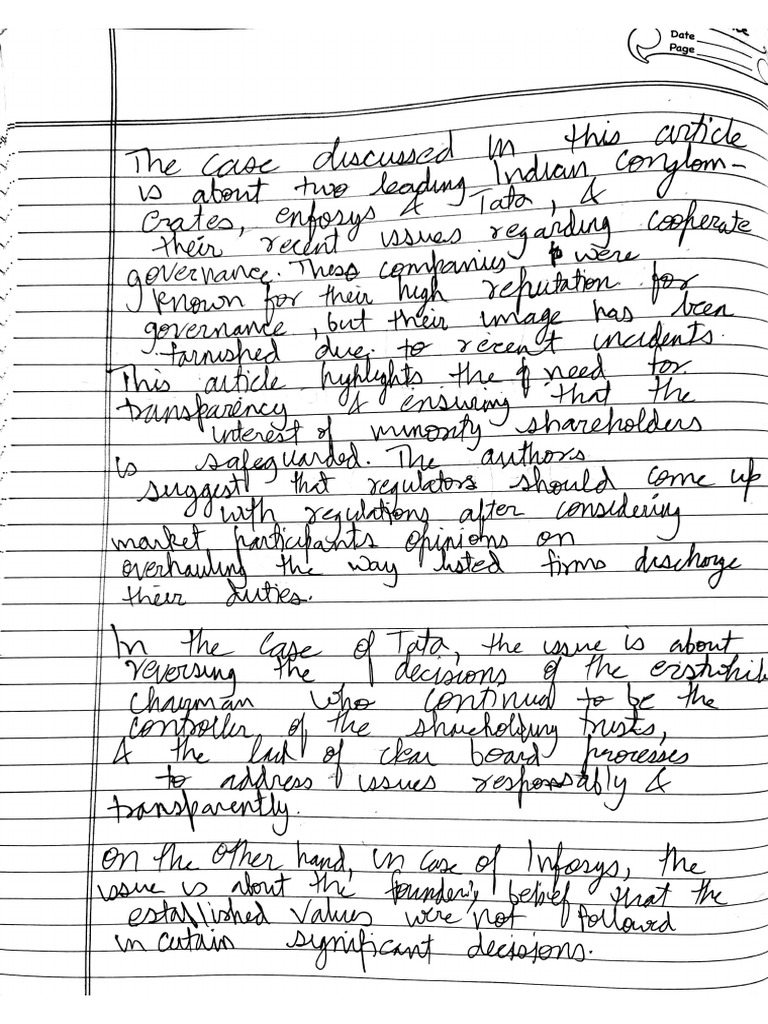 Date
Page
The case discussed in this article
is about two leading Indian conglom-
erates, enfosys & Tata, &
their recent issues regarding cooperate
governance. These companies were
known for their high reputation for
governance, but their image has been
tarnished due to recent incidents.
This article highlights the need for
transparency & ensuring that the
interest of minority shareholders
is safeguarded. The authors
suggest that regulators should come up
with regulations after considering
market participants opinions on
overhauling the way listed firms discharge
their duties.
In the case of Tata, the issue is about
reversing the decisions of the
chayman who continued to be the
controller of the shareholding trusts,
& the lack of clear board processes
to address issues responsably &
transparently.
on the other hand, in case of Infosys, the
issue is about the founder's belief that the
established values were not followed
in certain significant decisions.